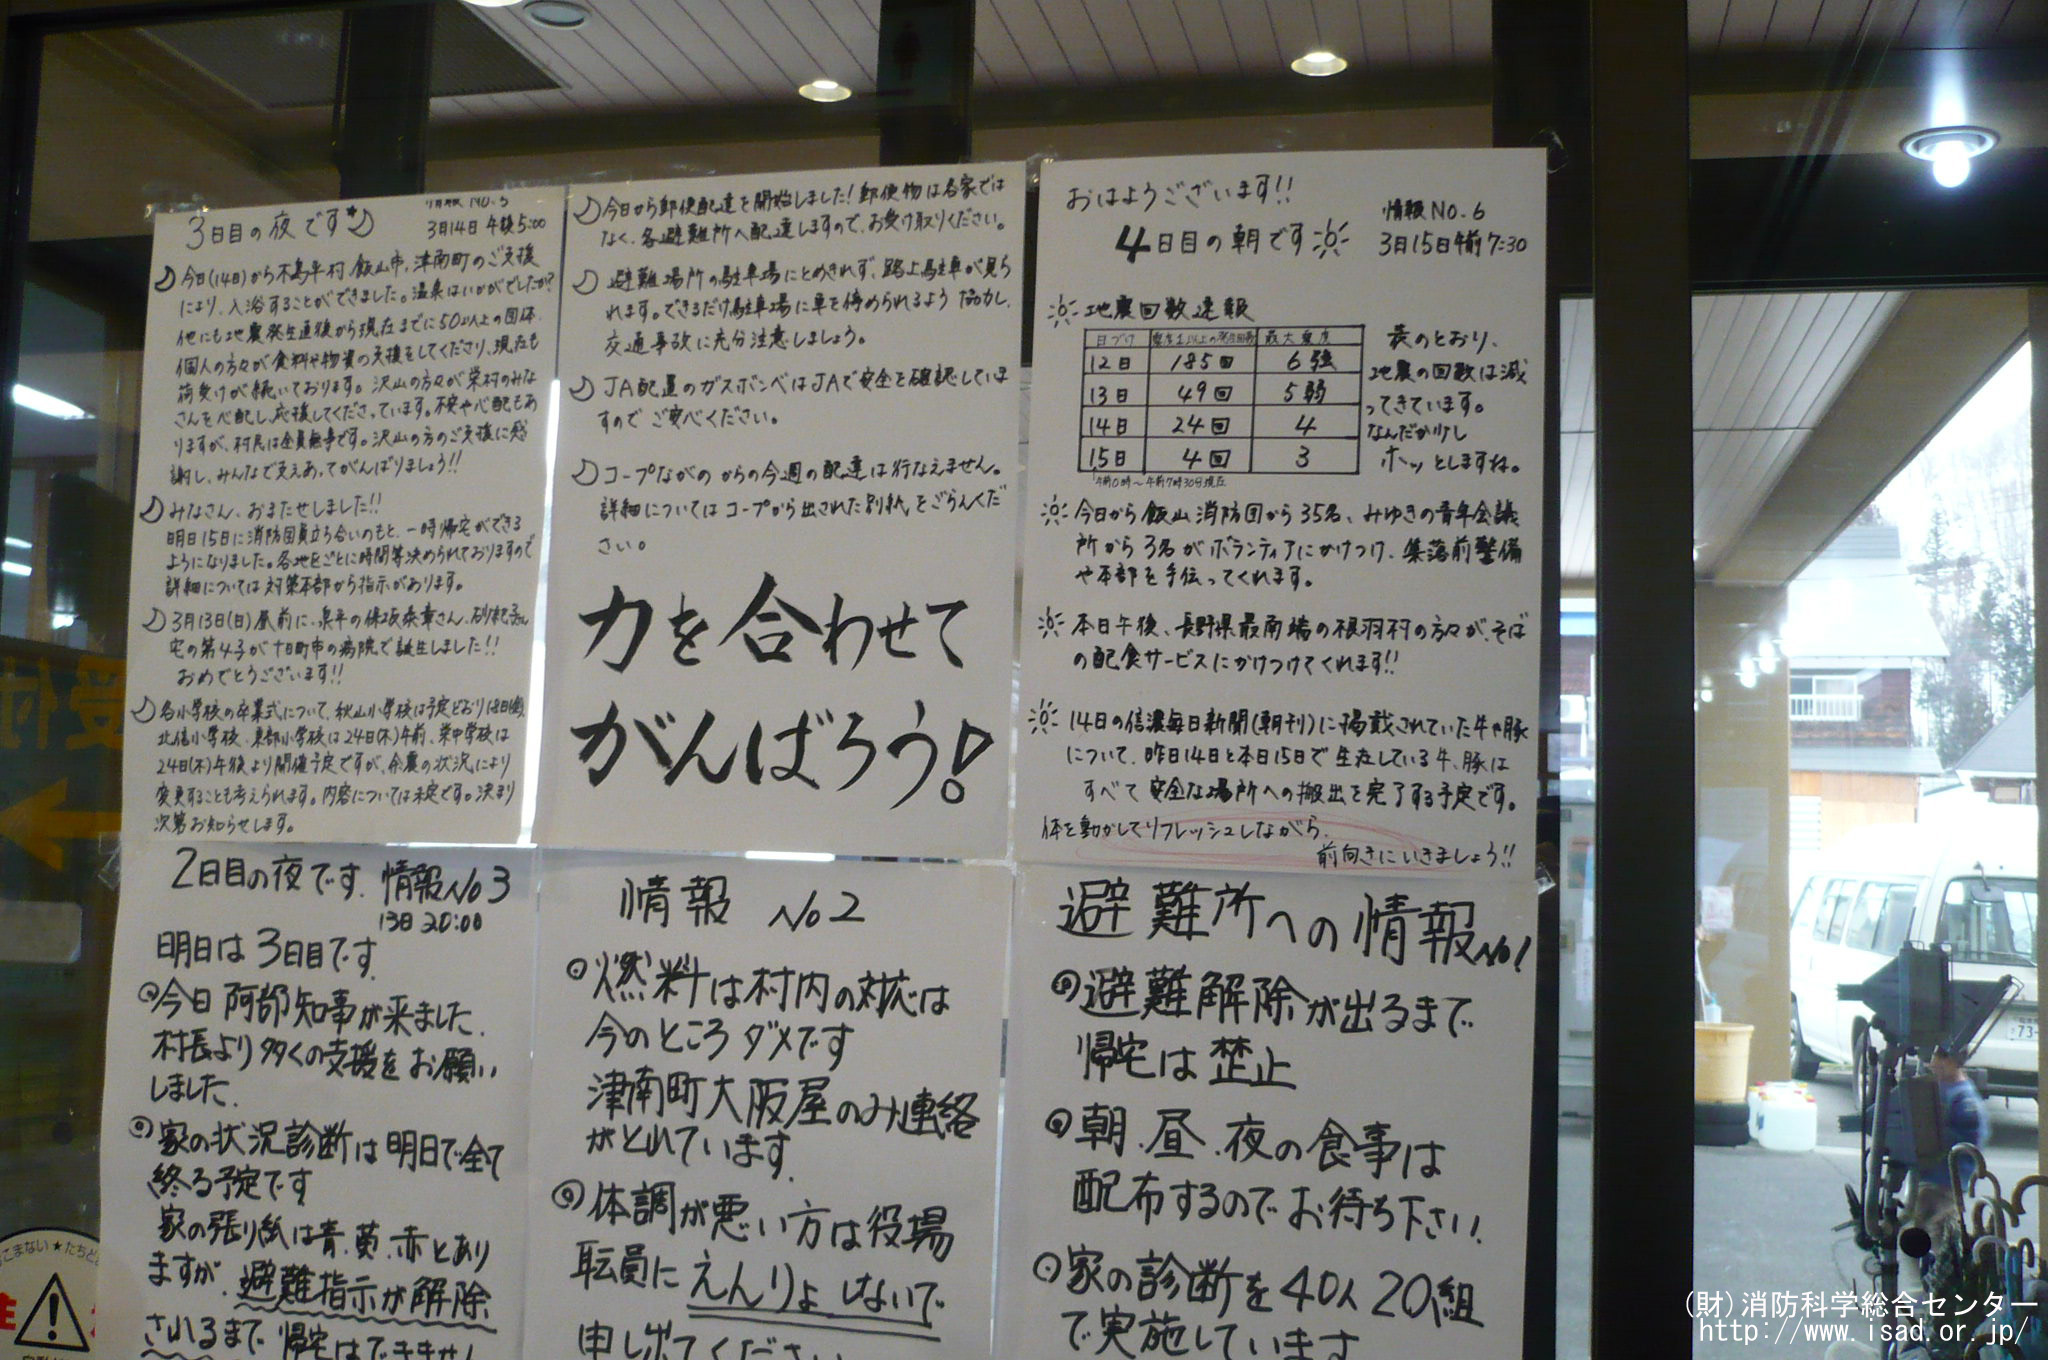 3日目の夜です
情報 NO.5
3月14日 午後5:00
今日(14日)から木島平村、飯山市、津南町のご支援
により、入浴することができました。温泉はいかがでしたか?
他にも地震発生直後から現在までに50以上の団体、
個人の方々が食料や物資の支援をしてくださり、現在も
荷受けが続いております。沢山の方々が栄村のみな
さんを心配し、応援してくださっています。不安や心配もあ
りますが、村民は全員無事です。沢山の方のご支援に感
謝し、みんなで支えあってがんばりましょう!!
みなさん、おまたせしました!!
明日15日に消防団員立ち合いのもと、一時帰宅ができる
ようになりました。各地区ごとに時間等決められておりますので
詳細については対策本部から指示があります。
3月13日(日)昼前に、泉平の保坂泰章さん、
宅の第4子が十日町市の病院で誕生しました!!
おめでとうございます!!
各小学校の卒業式について、秋山小学校は予定どおり18日(金)、
北信小学校、東部小学校は24日(木)午前、栄中学校は
24日(木)午後より開催予定ですが、余震の状況により
変更することも考えられます。内容については未定です。決まり
次第お知らせします。
今日から郵便配達を開始しました!郵便物は各家では
なく、各避難所へ配達しますので、お受け取りください。
避難場所の駐車場にとめきれず、路上駐車が見ら
れます。できるだけ駐車場に車を停められるよう協力し、
交通事故に充分注意しましょう。
JA配置のガスボンベはJAで安全を確認していま
すので ご安心ください。
コープながの からの今週の配達は行なえません。
詳細については コープから出された別紙をごらんくだ
さい。
力を合わせて
がんばろう!
おはようございます!!
4日目の朝です
情報NO.6
3月15日午前7:30
地震回数速報
日づけ 震度1以上の発生回数 最大震度
12日 185回 6強
13日 49回 5弱
14日 24回 4
15日 4回 3
午前0時~午前7時30分現在
表のとおり、
地震の回数は減
ってきています。
なんだか少し
ホッとしますね。
今日から飯山消防団から35名、みゆきの青年会議
所から3名がボランティアにかけつけ、集落前整備
や本部を手伝ってくれます。
本日午後、長野県最南端の根羽村の方々が、そば
の配食サービスにかけつけてくれます!!
14日の信濃毎日新聞(朝刊)に掲載されていた牛や豚
について、昨日14日と本日15日で生存している牛、豚は
すべて 安全な場所への搬出を完了する予定です。
体を動かしてリフレッシュしながら、
前向きにいきましょう!!
2日目の夜です. 情報No3
13日 20:00
明日は3日目です.
今日 阿部知事が来ました.
村長より多くの支援をお願い
しました.
家の状況診断は明日で全て
終る予定です
家の張り紙は青.黄.赤とあり
ますが.避難指示が解除
されるまで 帰宅はできません
情報 No2
燃料は村内の対応は
今のところ ダメです
津南町大阪屋のみ連絡
がとれています.
体調が悪い方は役場
職員に えんりょ しないで
申し出てください
避難所への情報No1
避難解除が出るまで
帰宅は禁止
朝.昼.夜の食事は
配布するのでお待ち下さい!
家の診断を40人20組
で実施しています
(財)消防科学総合センター
http://www.isad.or.jp/